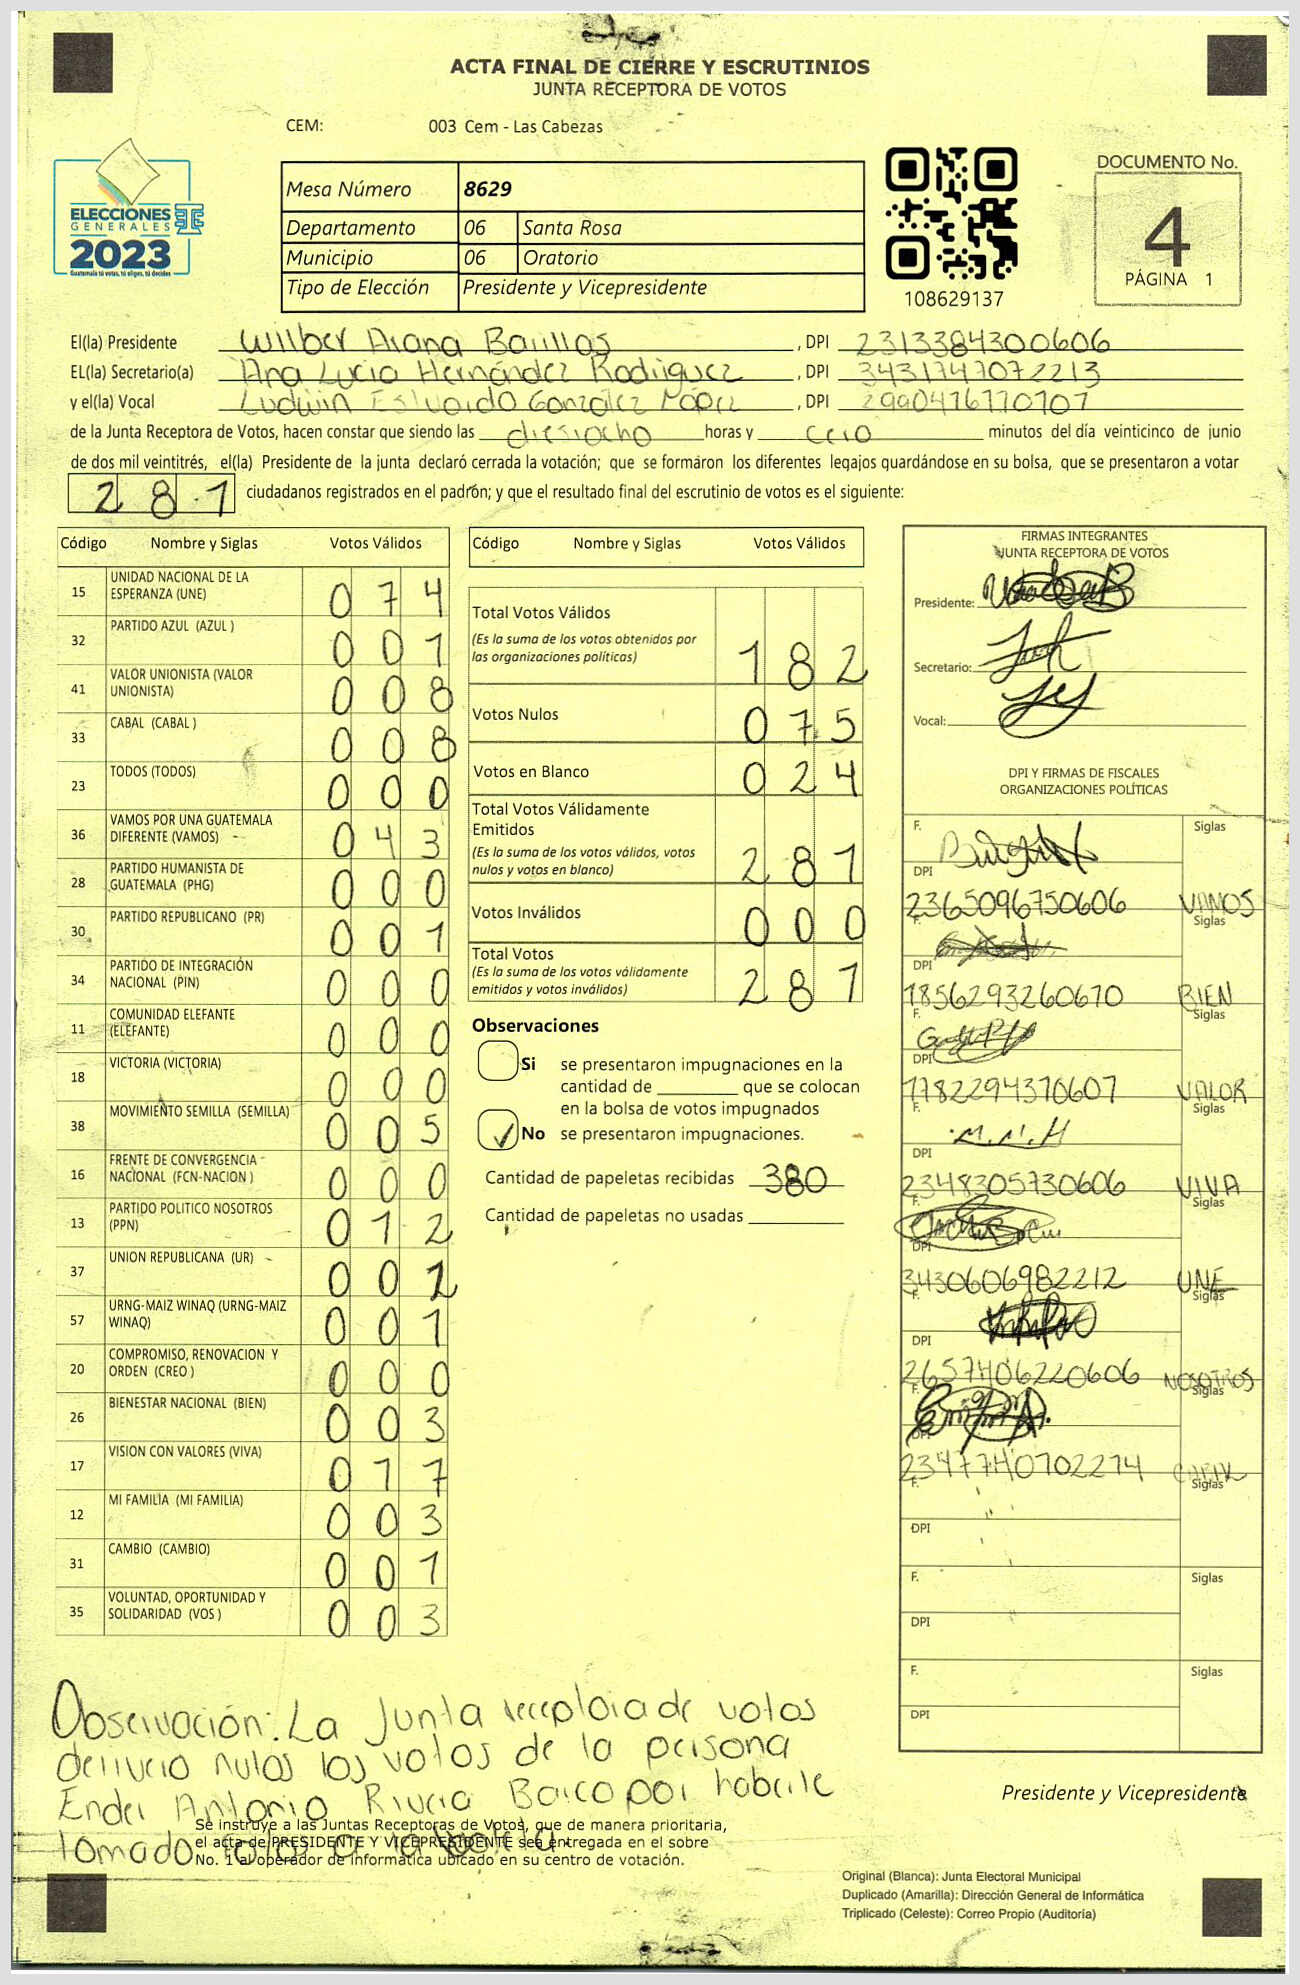 ACTA FINAL DE CIERRE Y ESCRUTINIOS
JUNTA RECEPTORA DE VOTOS
CEM: 003 Cem - Las Cabezas
ELECCIONES
GENERALES
2023
Guatemala tú votas, tú eliges, tú decides
Mesa Número 8629
Departamento 06 Santa Rosa
Municipio 06 Oratorio
Tipo de Elección Presidente y Vicepresidente
108629137
DOCUMENTO No.
4
PÁGINA 1
El(la) Presidente Wilber Arana Barillas, DPI 2313384300606
EL(la) Secretario(a) Ana Lucia Hernández Rodriguez, DPI 3431747072213
y el(la) Vocal Ludwin Estuardo González, DPI 2990476770707
de la Junta Receptora de Votos, hacen constar que siendo las diesiocho horas y cero minutos del día veinticinco de junio
de dos mil veintitrés, el(la) Presidente de la junta declaró cerrada la votación; que se formaron los diferentes legajos quardándose en su bolsa, que se presentaron a votar
281 ciudadanos registrados en el padrón; y que el resultado final del escrutinio de votos es el siguiente:
Código Nombre y Siglas Votos Válidos
15 UNIDAD NACIONAL DE LA ESPERANZA (UNE) 074
32 PARTIDO AZUL (AZUL ) 001
41 VALOR UNIONISTA (VALOR UNIONISTA) 008
33 CABAL (CABAL ) 008
23 TODOS (TODOS) 000
36 VAMOS POR UNA GUATEMALA DIFERENTE (VAMOS) 043
28 PARTIDO HUMANISTA DE GUATEMALA (PHG) 000
30 PARTIDO REPUBLICANO (PR) 001
34 PARTIDO DE INTEGRACIÓN NACIONAL (PIN) 000
11 COMUNIDAD ELEFANTE (ELEFANTE) 000
18 VICTORIA (VICTORIA) 000
38 MOVIMIENTO SEMILLA (SEMILLA) 005
16 FRENTE DE CONVERGENCIA NACIONAL (FCN-NACION ) 000
13 PARTIDO POLITICO NOSOTROS (PPN) 012
37 UNION REPUBLICANA (UR) 002
57 URNG-MAIZ WINAQ (URNG-MAIZ WINAQ) 001
20 COMPROMISO, RENOVACION Y ORDEN (CREO ) 000
26 BIENESTAR NACIONAL (BIEN) 003
17 VISION CON VALORES (VIVA) 017
12 MI FAMILIA (MI FAMILIA) 003
31 CAMBIO (CAMBIO) 001
35 VOLUNTAD, OPORTUNIDAD Y SOLIDARIDAD (VOS ) 003
Código Nombre y Siglas Votos Válidos
Total Votos Válidos 182
(Es la suma de los votos obtenidos por
las organizaciones políticas)
Votos Nulos 075
Votos en Blanco 024
Total Votos Válidamente
Emitidos 281
(Es la suma de los votos válidos, votos
nulos y votos en blanco)
Votos Inválidos 000
Total Votos 281
(Es la suma de los votos válidamente
emitidos y votos inválidos)
Observaciones
Si se presentaron impugnaciones en la
cantidad de ________ que se colocan
en la bolsa de votos impugnados
✓ No se presentaron impugnaciones.
Cantidad de papeletas recibidas 380
Cantidad de papeletas no usadas ________
FIRMAS INTEGRANTES
JUNTA RECEPTORA DE VOTOS
Presidente:
Secretario:
Vocal:
DPI Y FIRMAS DE FISCALES
ORGANIZACIONES POLÍTICAS
F. Siglas
DPI 2365096750606 VAMOS
F. Siglas
DPI 1856293260670 BIEN
F. Siglas
DPI 1782294370607 VALOR
F. M.N.H Siglas
DPI 2348305730606 VIVA
F. Siglas
DPI 3430606982212 UNE
F. Siglas
DPI 2657406220606 NOSOTROS
F. Siglas
DPI 2347740702274 CABAL
F. Siglas
DPI
F. Siglas
DPI
F. Siglas
DPI
Observación: La Junta receptora de votos
nulos los votos de la persona
Ender Antonio Rivera Barco por haberle
tomado foto a la boleta.
Se instruye a las Juntas Receptoras de Votos, que de manera prioritaria,
el acta de PRESIDENTE Y VICEPRESIDENTE sea entregada en el sobre
No. 1 al operador de informática ubicado en su centro de votación.
Presidente y Vicepresidente
Original (Blanca): Junta Electoral Municipal
Duplicado (Amarilla): Dirección General de Informática
Triplicado (Celeste): Correo Propio (Auditoría)